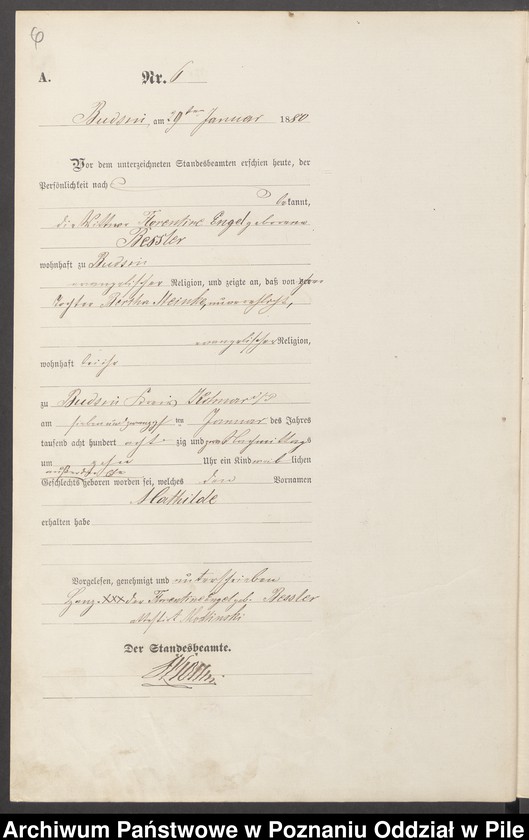 6
A. Nr. 6
Budsin, am 29ten Januar 1880
Vor dem unterzeichneten Standesbeamten erschien heute, der
Persönlichkeit nach
bekannt,
die Wittwe Florentine Engel geborene
Bessler
wohnhaft zu Budsin
evangelischer Religion, und zeigte an, daß von
Tochter Bertha Meinke, unverehelicht,
evangelischer Religion,
wohnhaft bei ihr
zu Budsin Kreis Kolmar i/P
am siebenundzwanzigsten Januar des Jahres
tausend acht hundert achtzig und Nachmittags
um zehn Uhr ein Kind weiblichen
Geschlechts geboren worden sei, welches den Vornamen
Mathilde
erhalten habe
Vorgelesen, genehmigt und unterschrieben
Handz. XXX der Florentine Engel geb. Bessler
attestirt
Der Standesbeamte.
Archiwum Państwowe w Poznaniu Oddział w Pile